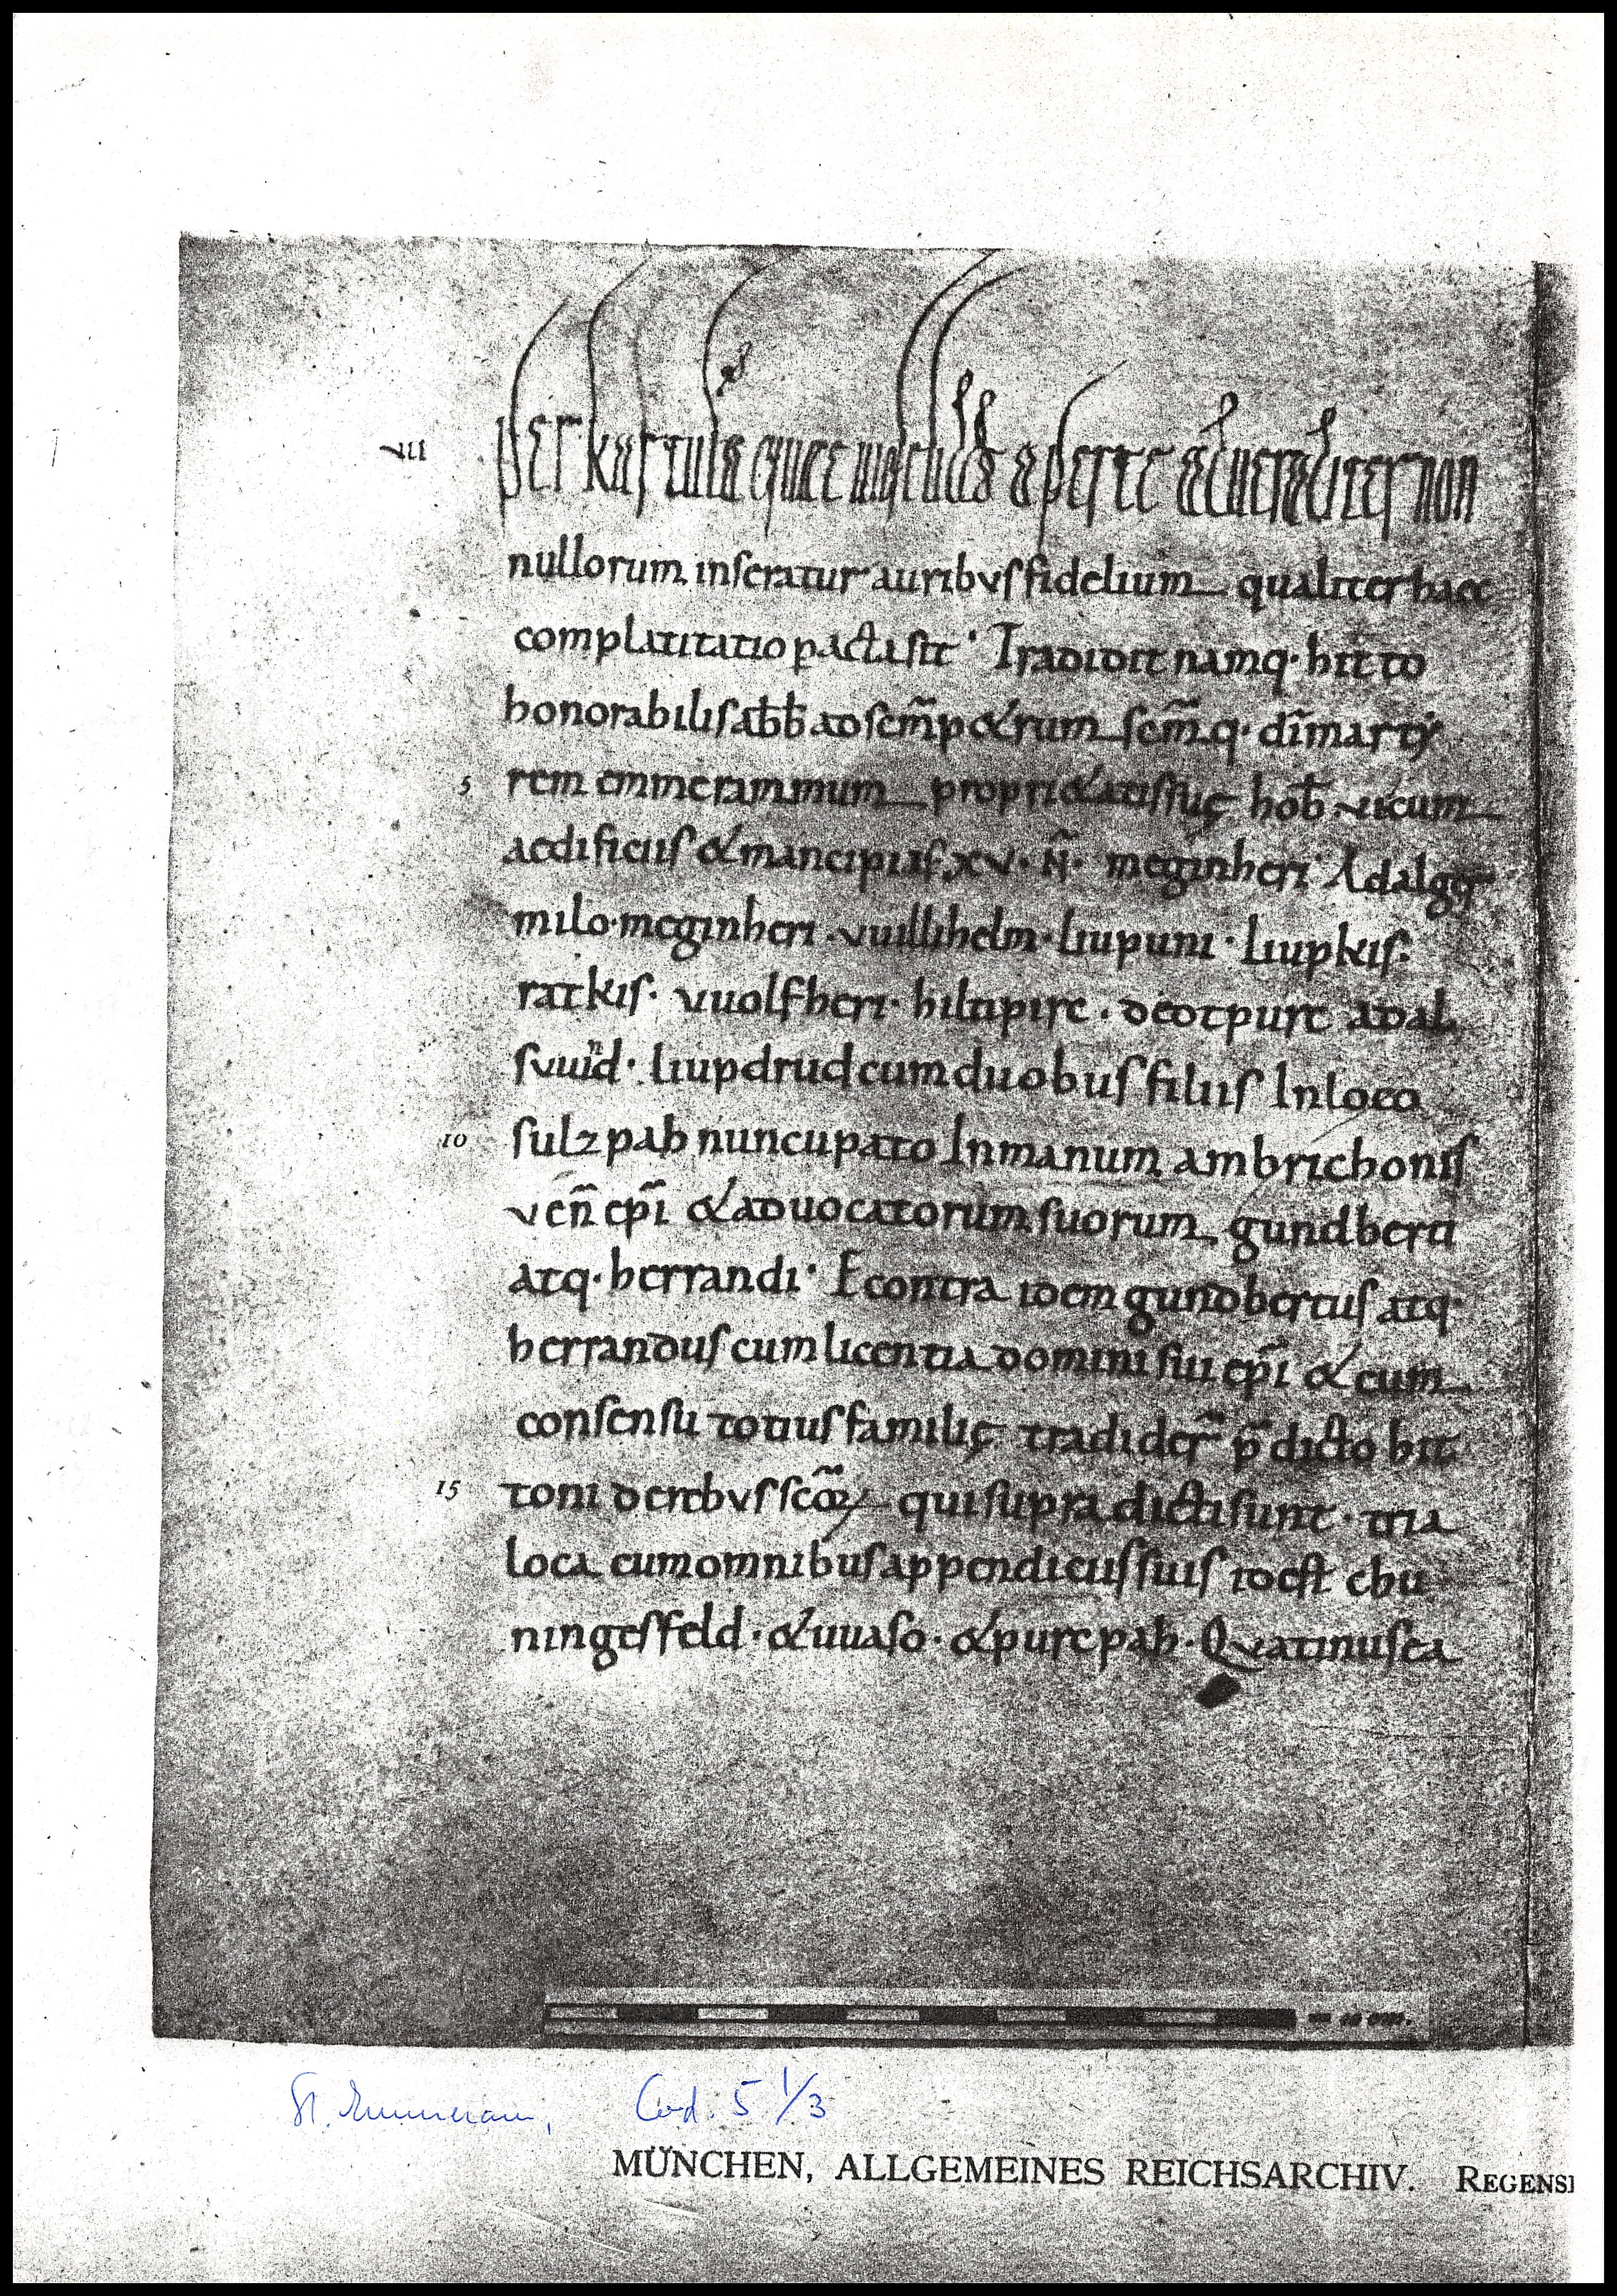 VII per kartulę quce aperte et veraciter non
nullorum inseratur auribus fidelium qualiter haec
complatitatio pacta sit · Tradidit namq· hitto
honorabilis abb̄ ad scm̄ petrum scm̄q· dī marty
5 rem emmerammum proprietatis suę hob̄· vi cum
aedificiis et mancipias xv· N̄· meginheri· Adalger
milo· meginheri· vuillihelm· liupuni· liupkis·
ratkis· vuolfheri· hiltipirc· deotpurc adal
suuind· liupdrud cum duobus filiis In loco
10 sulzpah nuncupato In manum ambrichonis
ven̄ ep̄i et aduocatorum suorum gundberti
atq· herrandi· E contra idem gundbertus atq·
herrandus cum licentia domini sui ep̄i et cum
consensu totius familię tradider̄ p̄dicto hit
15 toni de rebus scōꝝ qui supra dicti sunt· tria
loca cum omnibus appendiciis suis id est chu
ningesfeld· et uuaso· et purcpah· Quatinus ea
St. Emmeram, Cod. 5 1/3
MÜNCHEN, ALLGEMEINES REICHSARCHIV. REGENS